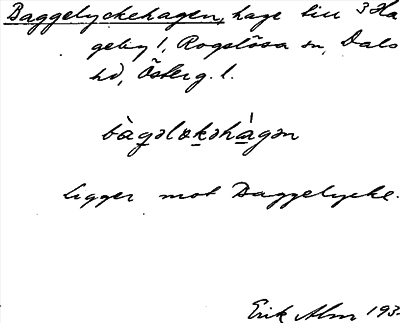 Daggelyckehagen, hage till 3 Ha
geby 1, Rogslösa sn, Dals
hd, Österg. l.
bàgəlɷkəhàgən
ligger mot Daggelycke.
Erik Alm 193